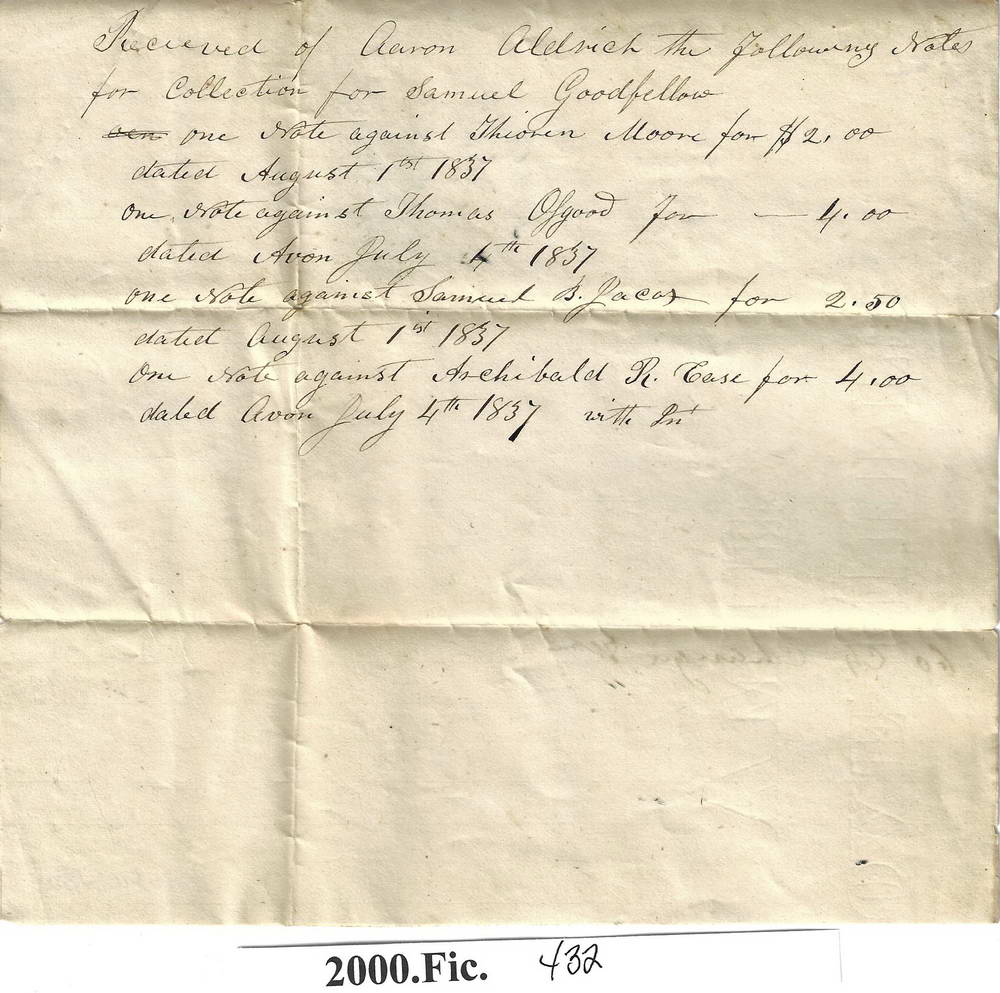 Recieved of Aaron Aldrich the following Notes
for Collection for Samuel Goodfellow
one Note against Moore for $2.00
dated August 1st 1837
one Note against Thomas Osgood for — 4.00
dated Avon July 4th 1837
one Note against Samuel B. for 2.50
dated August 1st 1837
One Note against Archibald R. Case for 4.00
dated Avon July 4th 1837 with Int
2000.Fic. 432